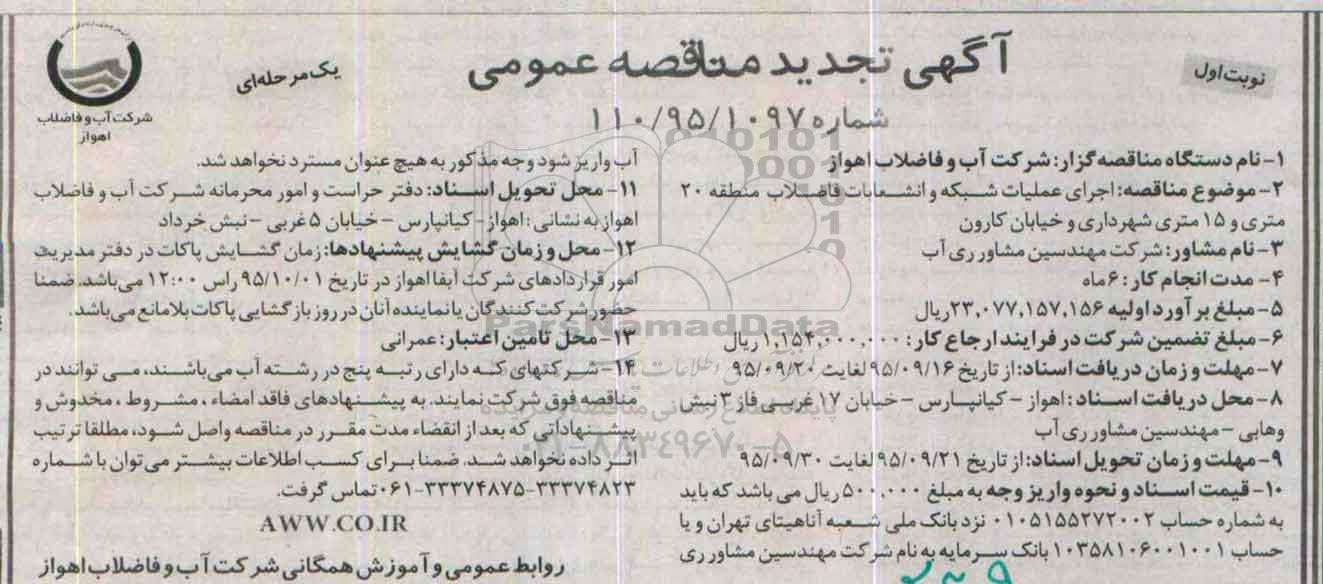 نوبت اول
آگهی تجدید مناقصه عمومی
یک مرحله‌ای
شماره ۱۱۰/۹۵/۱۰۹۷
شرکت آب و فاضلاب
اهواز
۱- نام دستگاه مناقصه گزار: شرکت آب و فاضلاب اهواز
۲- موضوع مناقصه: اجرای عملیات شبکه و انشعابات فاضلاب منطقه ۲۰
متری و ۱۵ متری شهرداری و خیابان کارون
۳- نام مشاور: شرکت مهندسین مشاور ری آب
۴- مدت انجام کار: ۶ ماه
۵- مبلغ برآورد اولیه ۲۳,۰۷۷,۱۵۷,۱۵۶ ریال
۶- مبلغ تضمین شرکت در فرایند ارجاع کار: ۱,۱۵۴,۰۰۰,۰۰۰ ریال
۷- مهلت و زمان دریافت اسناد: از تاریخ ۹۵/۰۹/۱۶ لغایت ۹۵/۰۹/۲۰
۸- محل دریافت اسناد: اهواز - کیانپارس - خیابان ۱۷ غربی فاز ۳ نبش
وهابی - مهندسین مشاور ری آب
۹- مهلت و زمان تحویل اسناد: از تاریخ ۹۵/۰۹/۲۱ لغایت ۹۵/۰۹/۳۰
۱۰- قیمت اسناد و نحوه واریز وجه به مبلغ ۵۰۰,۰۰۰ ریال می باشد که باید
به شماره حساب ۰۱۰۵۱۵۵۲۷۲۰۰۲ نزد بانک ملی شعبه آناهیتای تهران و یا
حساب ۱۰۳۵۸۱۰۶۰۰۱۰۰۱ بانک سرمایه به نام شرکت مهندسین مشاور ری
آب واریز شود وجه مذکور به هیچ عنوان مسترد نخواهد شد.
۱۱- محل تحویل اسناد: دفتر حراست و امور محرمانه شرکت آب و فاضلاب
اهواز به نشانی: اهواز - کیانپارس - خیابان ۵ غربی - نبش خرداد
۱۲- محل و زمان گشایش پیشنهادها: زمان گشایش پاکات در دفتر مدیریت
امور قراردادهای شرکت آبفا اهواز در تاریخ ۹۵/۱۰/۰۱ راس ۱۲:۰۰ می باشد. ضمنا
حضور شرکت کنندگان یا نماینده آنان در روز بازگشایی پاکات بلامانع می باشد.
۱۳- محل تامین اعتبار: عمرانی
۱۴- شرکتهای که دارای رتبه پنج در رشته آب می باشند، می توانند در
مناقصه فوق شرکت نمایند. به پیشنهادهای فاقد امضاء، مشروط، مخدوش و
پیشنهاداتی که بعد از انقضاء مدت مقرر در مناقصه واصل شود، مطلقا ترتیب
اثر داده نخواهد شد. ضمنا برای کسب اطلاعات بیشتر می توان با شماره
۰۶۱-۳۳۳۷۴۸۷۵-۳۳۳۷۴۸۲۳ تماس گرفت.
AWW.CO.IR
روابط عمومی و آموزش همگانی شرکت آب و فاضلاب اهواز
ParsNamadData
۰۲۱-۸۸۳۴۹۶۷۰-۵